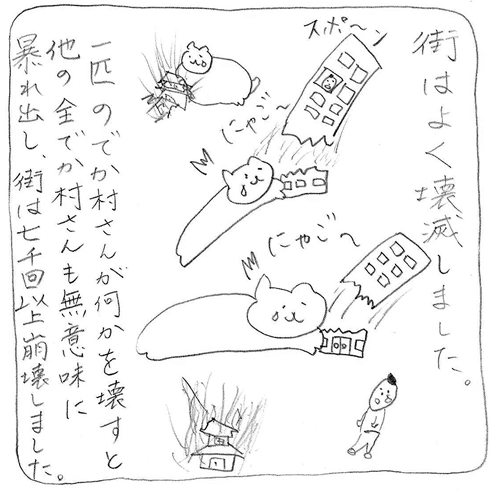 街はよく壊滅しました。
スポ〜ン
にゃご〜
にゃご〜
一匹のでか村さんが何かを壊すと
他の全でか村さんも無意味に
暴れ出し、街は七千回以上崩壊しました。